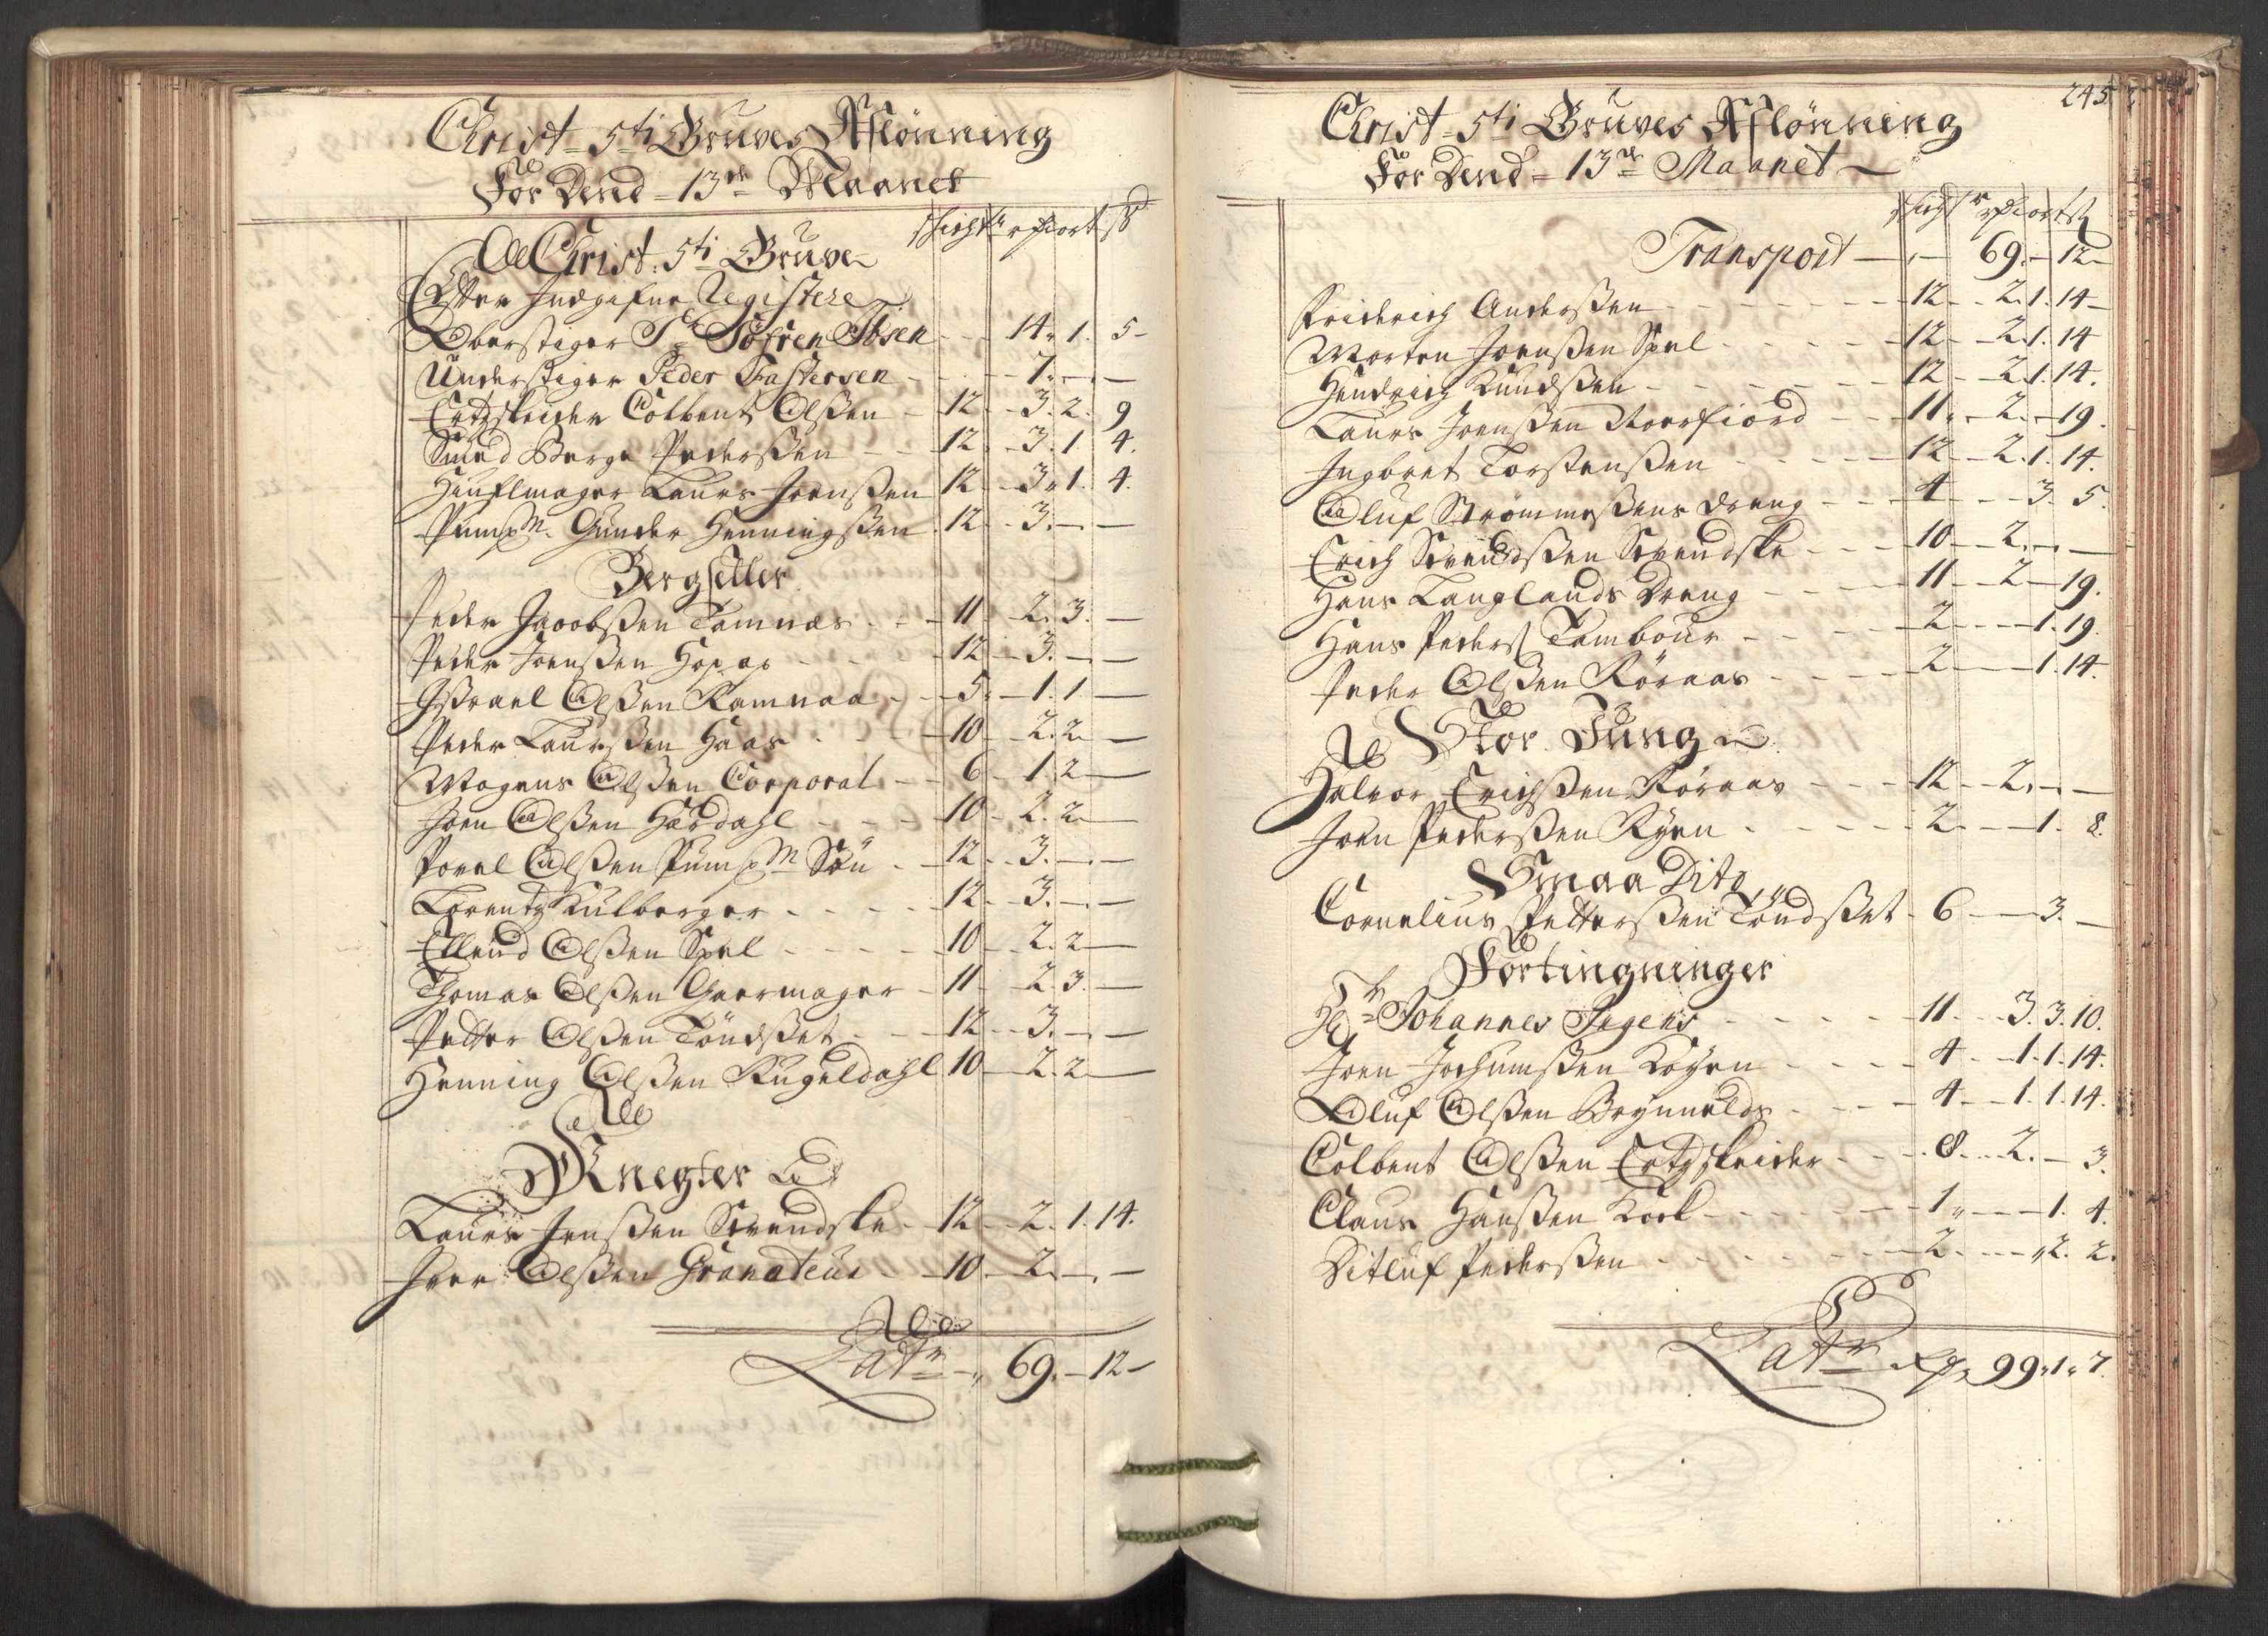 Christ 5ti Gruves Aflönning
For Dend 13de Maanet
schicht rdr ort ß
Christ: 5ti Gruve
Efter Indgifne Registere
Oberstiger Sr Söfren Ibsen - - 14. 1. 5
Understiger Peder Fastersen - - 7. - -
Ertzskeider Colbent Olßen - 12 - 3. 2. 9
Smed Berge Pederßen - - 12 - 3. 1. 4.
Laurs Joenßen 12 - 3. 1. 4.
PumpM. Gunder Henningßen 12 - 3. - -
Bergseller
Peder Jacobßen Tamnæs - - 11 - 2. 3. -
Peder Joenßen - - 12 - 3. - -
Jßrael Olßen Ramnaa - - 5 - 1. 1. -
Peder Laurßen Haas - - 10 - 2. 2 -
Mogens Olßen Corporal - - 6 - 1. 2 -
Joen Olßen Hardahl - - 10 - 2. 2 -
Povel Olßen PumpM Sön - 12 - 3. - -
Lorentz Kulberger - - 12 - 3. - -
Ellend Olßen Spel - - 10 - 2. 2 -
Thomas Olßen Gaermager - 11 - 2. 3. -
Petter Olßen Töndßet - - 12 - 3. - -
Henning Olßen Kugeldahl 10 - 2. 2 -
Knegter
Laurs Jenßen Svendske - 12 - 2. 1. 14.
Iver Olßen Granateur - 10 - 2. - -
Latr - 69. - 12 -
245
Christ 5ti Gruves Aflönning
For Dend 13de Maanet
schichtr rdr ort ß
Transport - - 69. - 12 -
Friderich Anderßen - - 12 - 2. 1. 14 -
Morten Joenßen Spel - - 12 - 2. 1. 14
Hendrich Knudßen - - 12 - 2. 1. 14.
Laurs Joenßen Noerfiord - - 11 - 2. - 19.
Ingbret Torstenßen - - 12 - 2. 1. 14.
Oluf Strömmeßens Dreng - - 4 - - 3. 5.
Erich Svendßen Svendske - - 10 - 2. - -
Hans Langlands Dreng - - 11 - 2 - 19.
Hans Peders Tambour - - 2 - - 1. 19.
Peder Olßen Röraas - - 2 - - 1. 14.
Stor Jung
Halvor Erichßen Röraas - - 12 - 2. - -
Joen Pederßen Ryen - - 2 - - 1. 8.
Smaa Dito
Cornelius Petterßen Töndßet - 6 - - 3. -
Fortingninger
Hr Johannes Irgens - - 11 - 3. 3. 10.
Joen Jochumßen Koyen - - 4 - 1. 1. 14.
Oluf Olßen Brynnilds - - 4 - 1. 1. 14.
Colbent Olßen Ertzskeider - - 8 - 2. - 3.
Claus Hanßen Kock - - 1 - - 1. 4.
Ditluf Pederßen - - 2 - - 2. 2.
Latr Rdr 99. 1. 7.